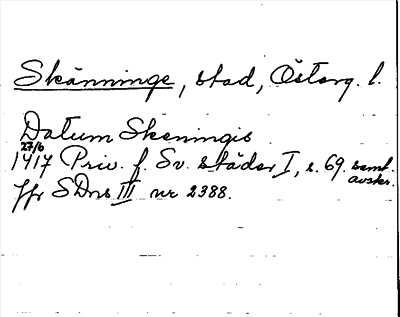 Skänninge, stad, Östorg. l.
Datum Skeningis
27/6
1417 Priv. f. Sv. städer I, s. 69. samt.
avskr.
Jfr SDns III nr 2388.